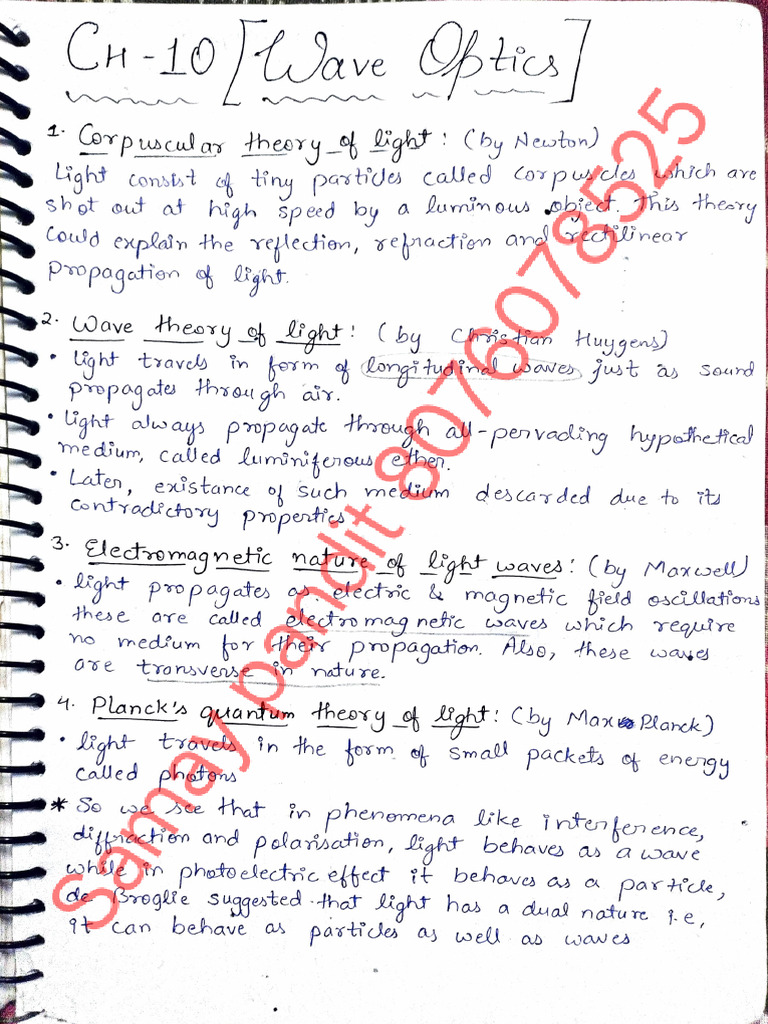 CH-10 [Wave Optics]
1. Corpuscular theory of light: (by Newton)
Light consist of tiny particles called corpuscles which are
shot out at high speed by a luminous object. This theory
could explain the reflection, refraction and rectilinear
propagation of light.
2. Wave theory of light: (by Christian Huygens)
• light travels in form of longitudinal waves just as sound
propagates through air.
• light always propagate through all-pervading hypothetical
medium, called luminiferous ether.
• Later, existance of such medium descarded due to its
contradictory properties
3. Electromagnetic nature of light waves: (by Maxwell)
• light propagates as electric & magnetic field oscillations
these are called electromagnetic waves which require
no medium for their propagation. Also, these waves
are transverse in nature.
4. Planck's quantum theory of light: (by Max Planck)
• light travels in the form of small packets of energy
called photons
* So we see that in phenomena like interference,
diffraction and polarisation, light behaves as a wave
while in photoelectric effect it behaves as a particle,
de Broglie suggested that light has a dual nature i.e,
it can behave as particles as well as waves
Samay pandit 8076078525